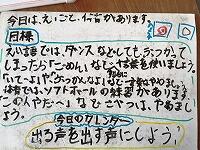 今日は、えいごと、体育があります。
目標
えい語では、ダンスなどしてもぶつかって
しまったら「ごめん」など、する声を使いましょう。
「いてーよ」や「ぶつかんなよ」など
体育では、ソフトボールの練習があります。
この人やだ～」などさやつは、やめましょう。
今日のカレンダー
出る声を出す声にしよう!